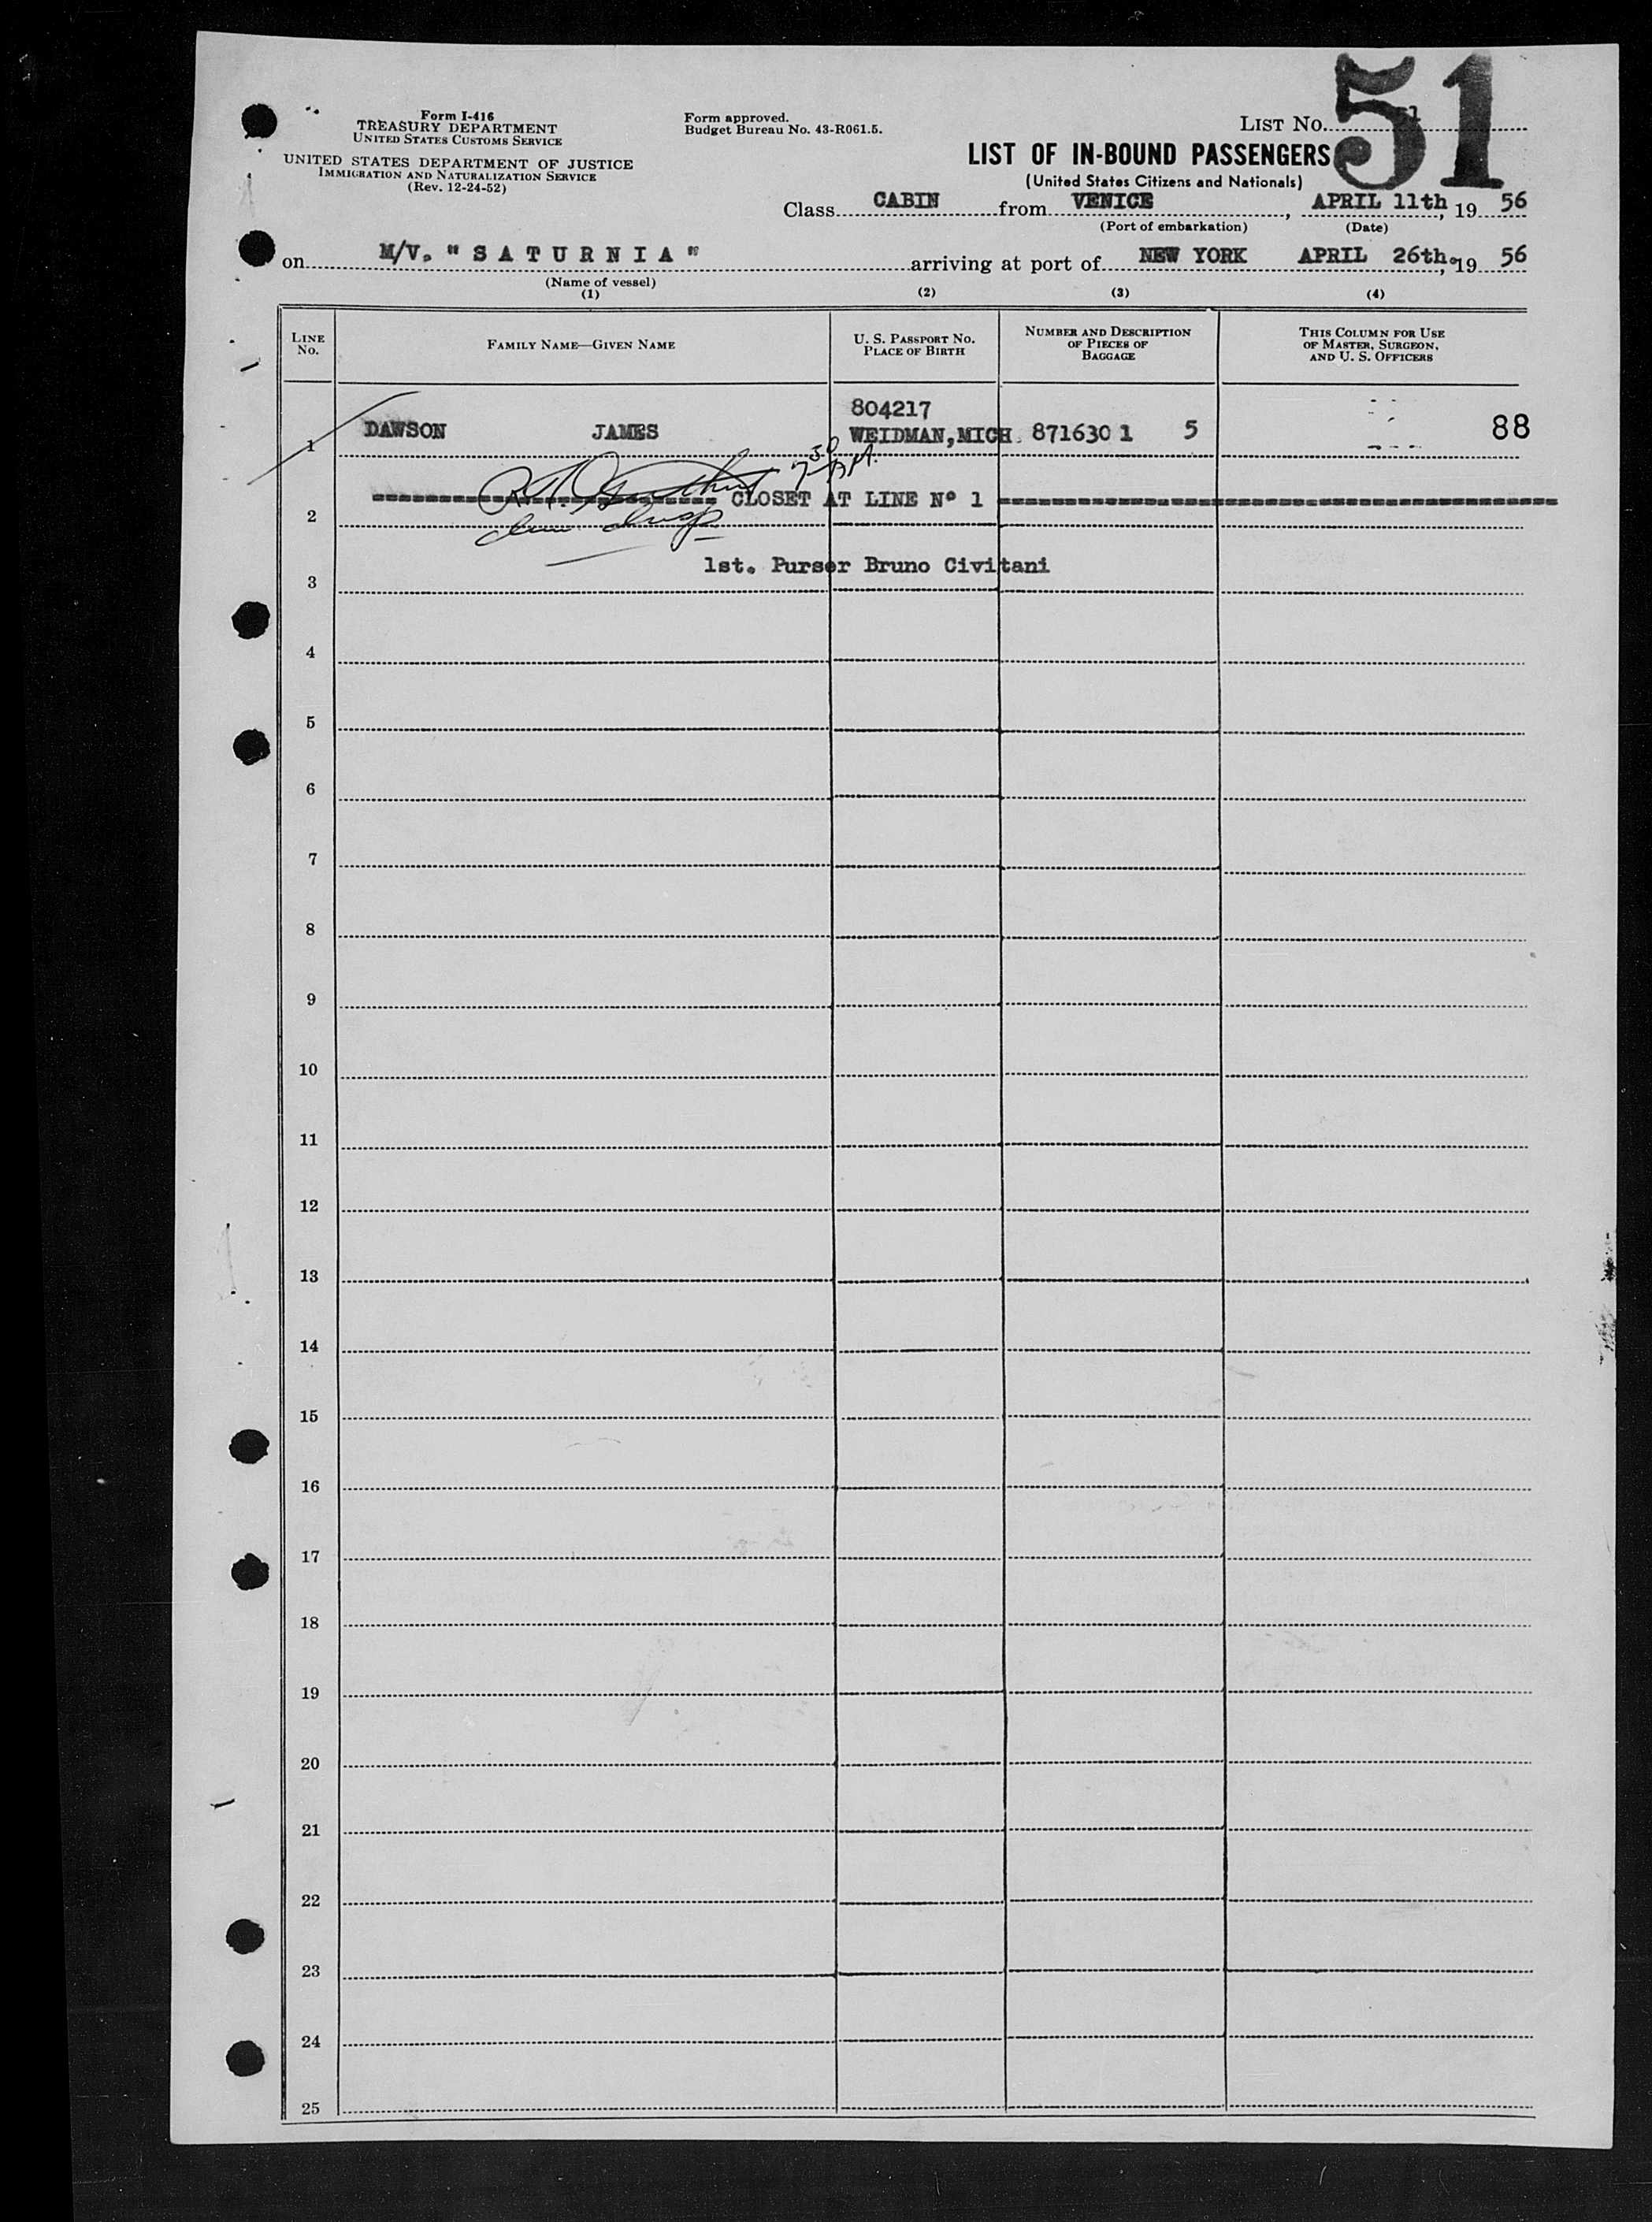 51
Form I-416
TREASURY DEPARTMENT
UNITED STATES CUSTOMS SERVICE
UNITED STATES DEPARTMENT OF JUSTICE
IMMIGRATION AND NATURALIZATION SERVICE
(Rev. 12-24-52)
Form approved.
Budget Bureau No. 43-R061.5.
LIST No.
LIST OF IN-BOUND PASSENGERS
(United States Citizens and Nationals)
Class CABIN from VENICE, APRIL 11th, 19 56
(Port of embarkation) (Date)
on M/V. "SATURNIA" arriving at port of NEW YORK APRIL 26th. 19 56
(Name of vessel)
(1) (2) (3) (4)
LINE No.
FAMILY NAME—GIVEN NAME
U. S. PASSPORT No. PLACE OF BIRTH
NUMBER AND DESCRIPTION OF PIECES OF BAGGAGE
THIS COLUMN FOR USE OF MASTER, SURGEON, AND U. S. OFFICERS
804217
1 DAWSON JAMES WEIDMAN,MICH. 871630 1 5 88
7 30 AM.
2 CLOSET AT LINE Nº 1
1st. Purser Bruno Civitani
3
4
5
6
7
8
9
10
11
12
13
14
15
16
17
18
19
20
21
22
23
24
25